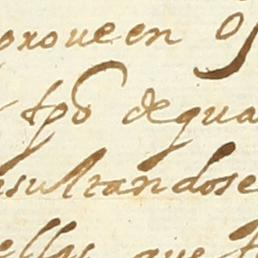 proveen
tpo dequa
nsultandose
ellas que